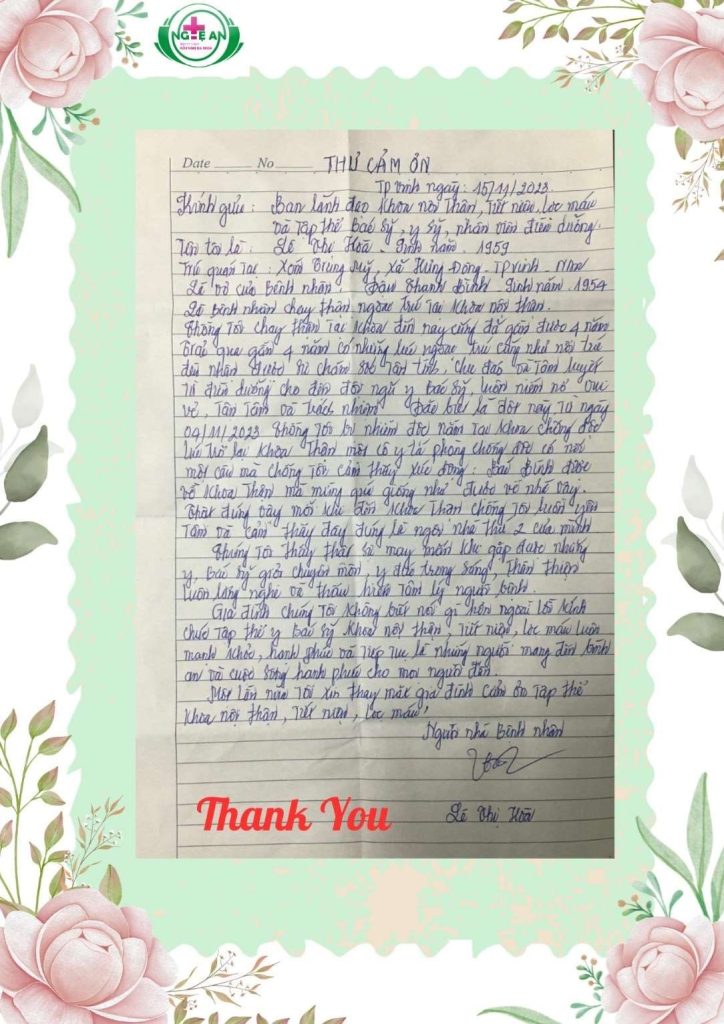 NGHỆ AN
Date No THƯ CẢM ƠN
TP Vinh ngày: 15/11/2023
Kính gửi: Ban lãnh đạo khoa nội thận, tiết niệu, lọc máu
và tập thể bác sỹ, y sỹ, nhân viên điều dưỡng.
Tên tôi là: Lê Thị Hoà - Sinh năm: 1959
Trú quán tại: Xóm Trung Mỹ, xã Hưng Đông - TP Vinh - N/An
Là vợ của bệnh nhân: Đậu Thanh Bình - Sinh năm: 1954
Là bệnh nhân chạy thận ngoại trú tại khoa nội thận.
Chồng tôi chạy thận tại khoa đến nay cũng đã gần được 4 năm
trải qua gần 4 năm có những lúc ngoại trú cũng như nội trú
đều nhận được sự chăm sóc tận tình, chu đáo và tâm huyết
từ điều dưỡng cho đến đội ngũ y bác sỹ, luôn niềm nở vui
vẻ, tận tâm và trách nhiệm Đặc biệt là đợt này từ ngày
09/11/2023 chồng tôi bị nhiễm độc nằm tại khoa chống độc
lúc trở lại khoa thận một cô y tá phòng chống độc có nói
một câu mà chồng tôi cảm thấy xúc động: Bác Bình được
về khoa thận mà mừng quá giống như được về nhà vậy.
Thật đúng vậy mỗi khi đến khoa thận chồng tôi luôn yên
tâm và cảm thấy đây đúng là ngôi nhà thứ 2 của mình
Chúng tôi thấy thật sự may mắn khi gặp được những
y, bác sỹ giỏi chuyên môn, y đức trong sáng, thân thiện
luôn lắng nghe và thấu hiểu tâm lý người bệnh.
Gia đình chúng tôi không biết nói gì hơn ngoài lời kính
chúc tập thể y bác sỹ khoa nội thận, tiết niệu, lọc máu luôn
mạnh khỏe, hạnh phúc và tiếp tục là những người mang đến bình
an và cuộc sống hạnh phúc cho mọi người đến.
Một lần nữa tôi xin thay mặt gia đình cảm ơn tập thể
khoa nội thận, tiết niệu, lọc máu!
Người nhà bệnh nhân
Lê Thị Hoà
Thank You